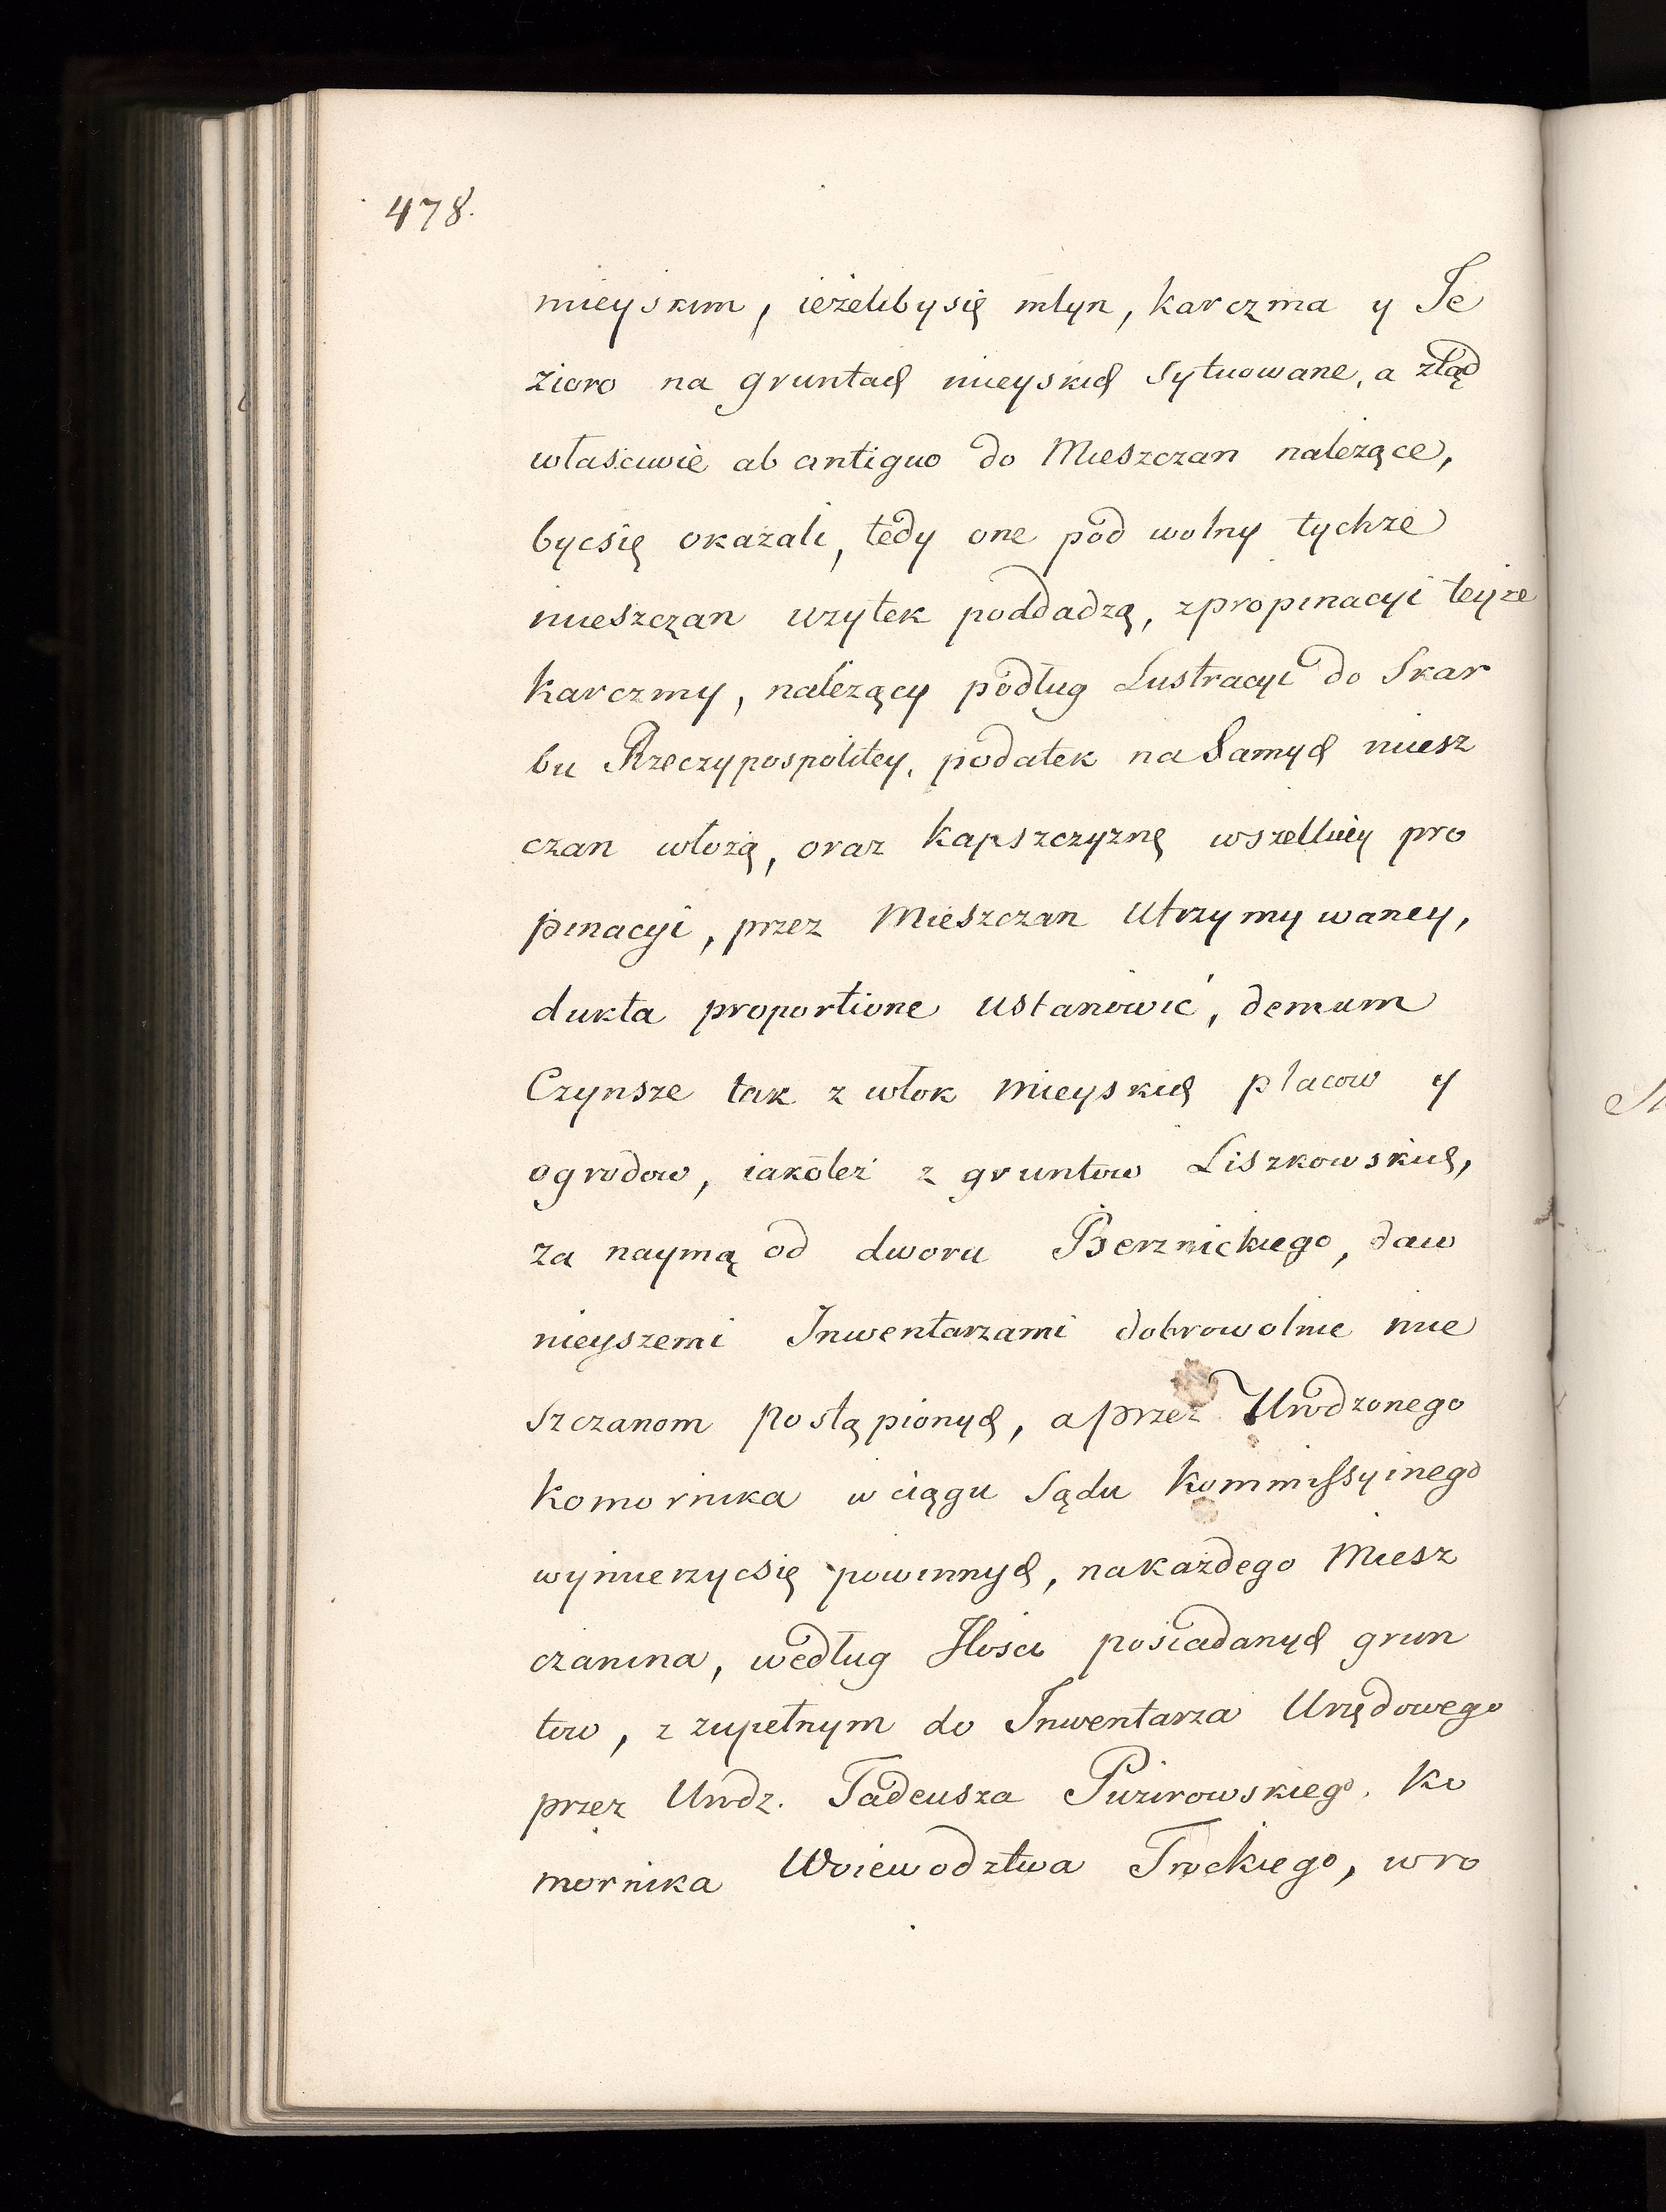 478.
mieyskim, ieżelibysię młyn, karczma y Je
zioro na gruntach mieyskich Sytuowane, a ztąd
własciwie ab antiquo do Mieszczan należące,
bycsię okazali, tedy one pod wolny tychże
mieszczan użytek poddadzą, z propinacyi teyże
karczmy, należący podług Lustracyi do Skar
bu Rzeczypospolitey, podatek na Samych miesz
czan włożą, oraz kapszczyznę wszelkiey pro
pinacyi, przez Mieszczan Utrzymywaney,
dukta proportione ustanowić, demum
Czynsze tak z włok mieyskich placow y
ogrodow, iakoteż z gruntow Liszkowskich,
za naymą od dworu Berznickiego, daw
nieyszemi Inwentarzami dobrowolnie mie
szczanom postąpionych, a przez Urodzonego
Komornika w ciągu Sądu Kommissyinego
wymierzycsię powinnych, na każdego Miesz
czanina, według Ilosci posiadanych grun
tow, z zupełnym do Inwentarza Urzędowego
przez Urodz. Tadeusza Puzirowskiego, Ko
mornika Woiewodztwa Trockiego, w ro